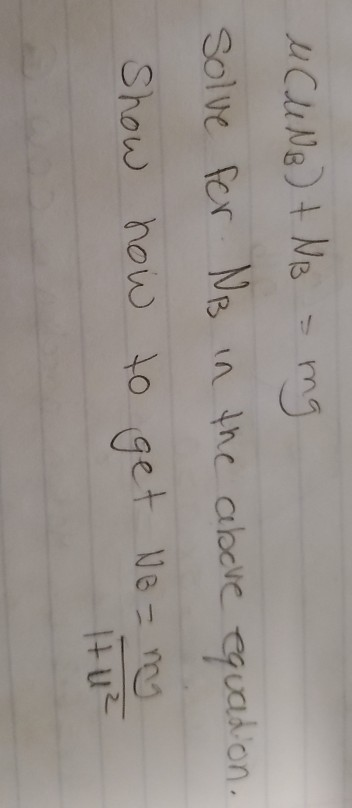 μ(μN_B) + N_B = mg
Solve for N_B in the above equation.
Show how to get N_B = mg/(1+μ²)